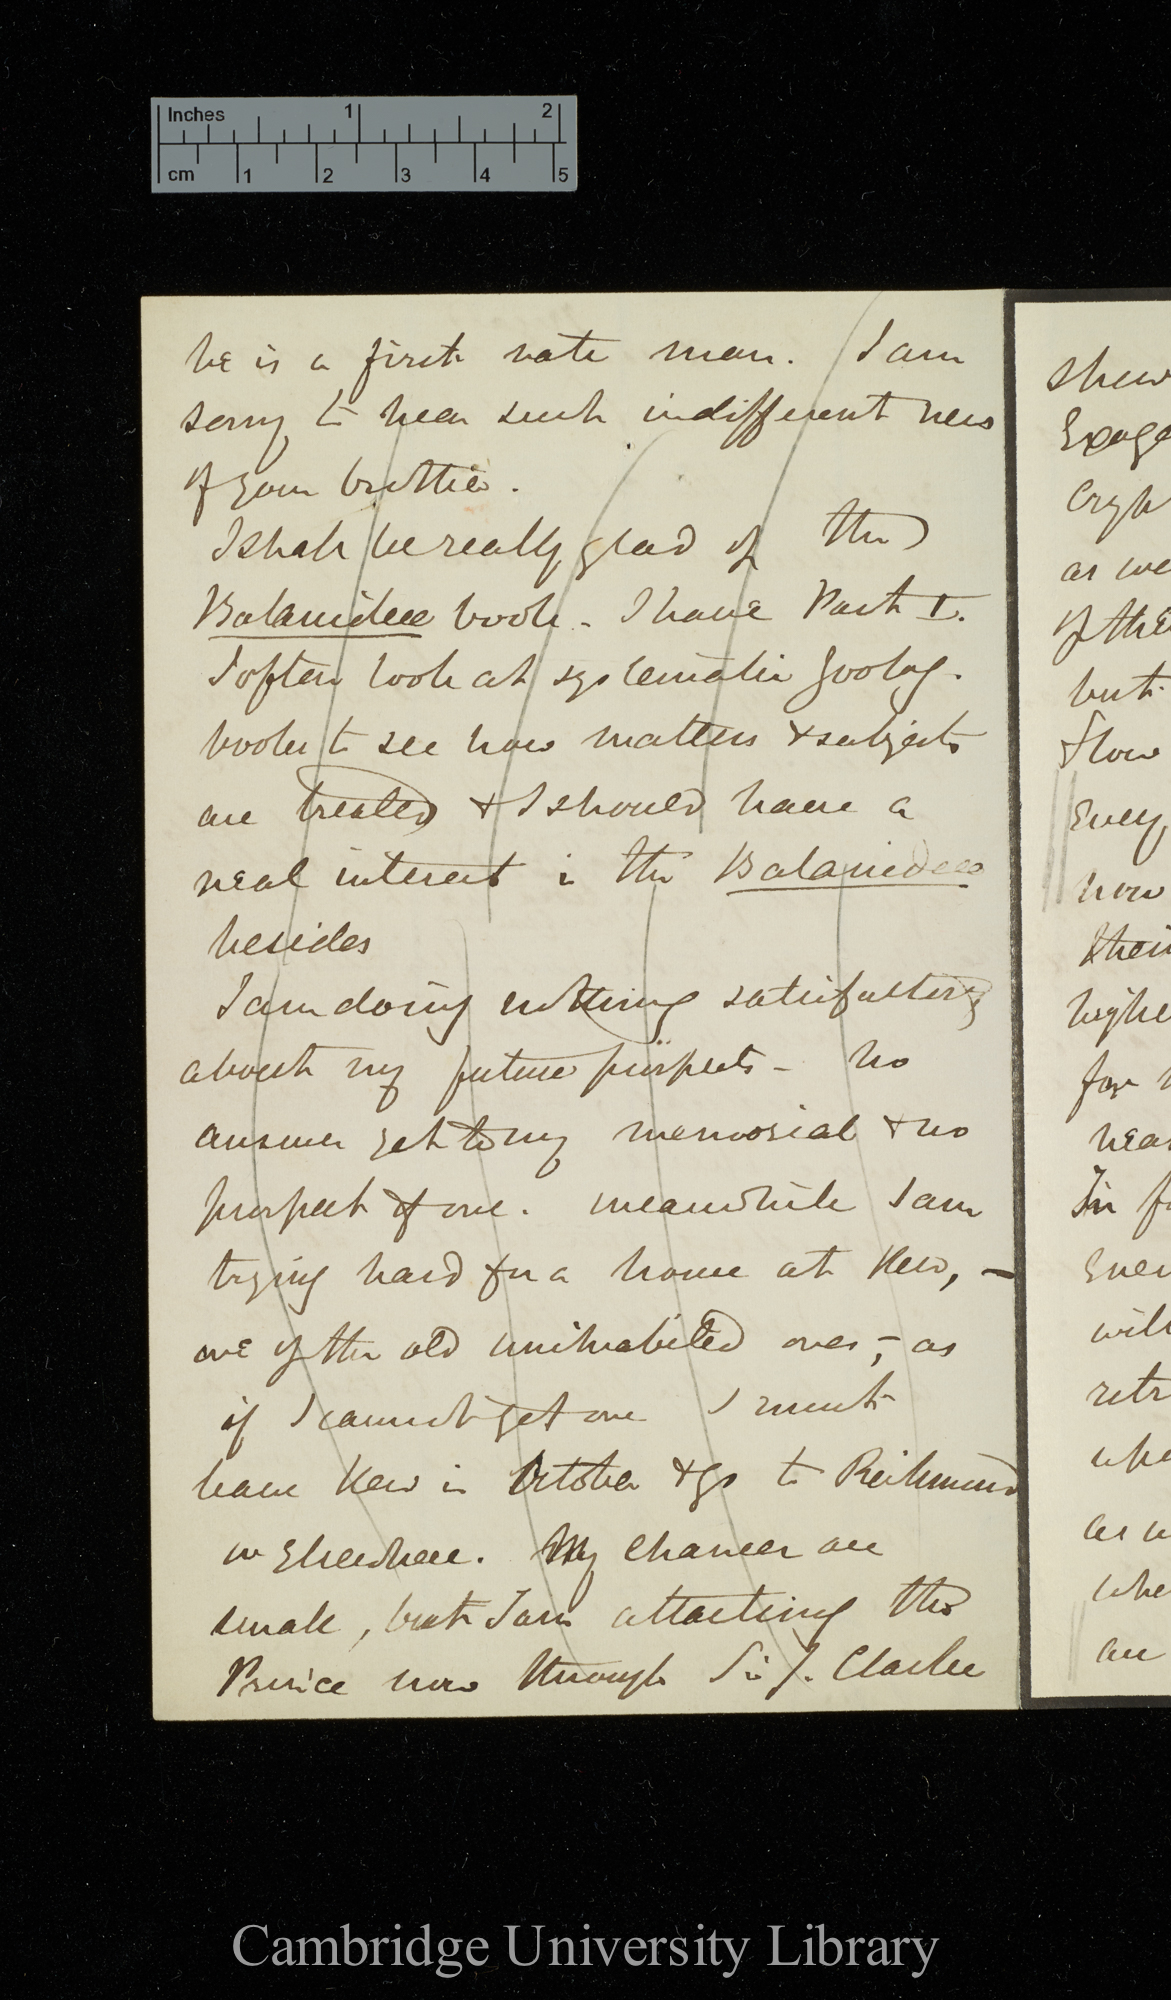 Inches 1 2
cm 1 2 3 4 5
he is a first rate man. I am
sorry to hear such indifferent news
of your brother.
I shall be really glad of the
Balanideæ book – I have Part I.
I often look at systematic Zoolog.
books to see how matters & subjects
are treated & I should have a
real interest in the Balanideæ
besides
I am doing nothing satisfactory
about my future prospects – no
answer yet to my memorial & no
prospect of one. meanwhile I am
trying hard for a house at Kew, –
one of the old uninhabited ones, – as
if I cannot get one I must
leave Kew in October & go to Richmond
or Elsewhere. My chances are
small, but I am attacking the
Prince now through Sir J. Clarke
shew
Exage
as we
of the
but
flow
Every
how
their
highe
for
In f
Ever
will
retr
as
whe
an
Cambridge University Library